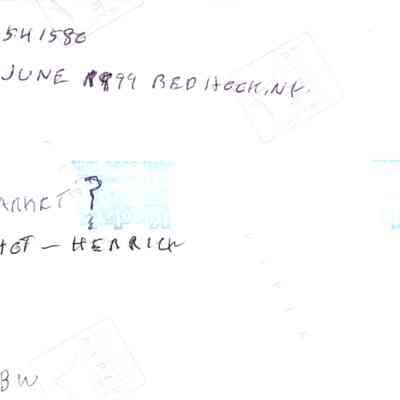 541580
JUNE 1899 RED HOOK, NY.
ARKET ?
HOT - HERRICK
BW